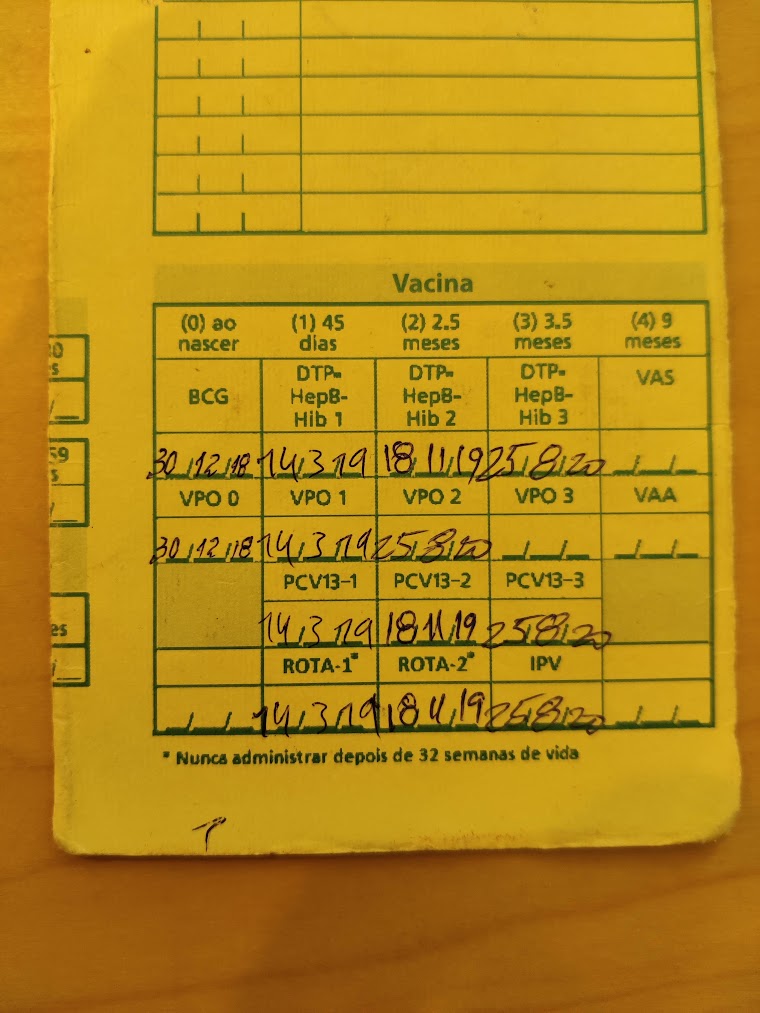 Vacina
(0) ao nascer (1) 45 dias (2) 2.5 meses (3) 3.5 meses (4) 9 meses
BCG DTP-HepB-Hib 1 DTP-HepB-Hib 2 DTP-HepB-Hib 3 VAS
30/12/18 14/3/19 18/11/19 25/8/20
VPO 0 VPO 1 VPO 2 VPO 3 VAA
30/12/18 14/3/19 25/8/20
PCV13-1 PCV13-2 PCV13-3
14/3/19 18/11/19 25/8/20
ROTA-1* ROTA-2* IPV
14/3/19 18/11/19 25/8/20
* Nunca administrar depois de 32 semanas de vida